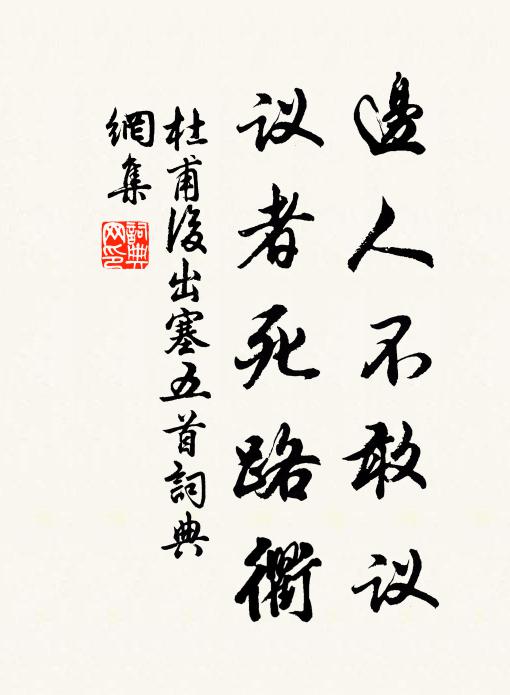 邊人不敢议
议者死路衢
杜甫後出塞五首詞典
網集
詞典网印